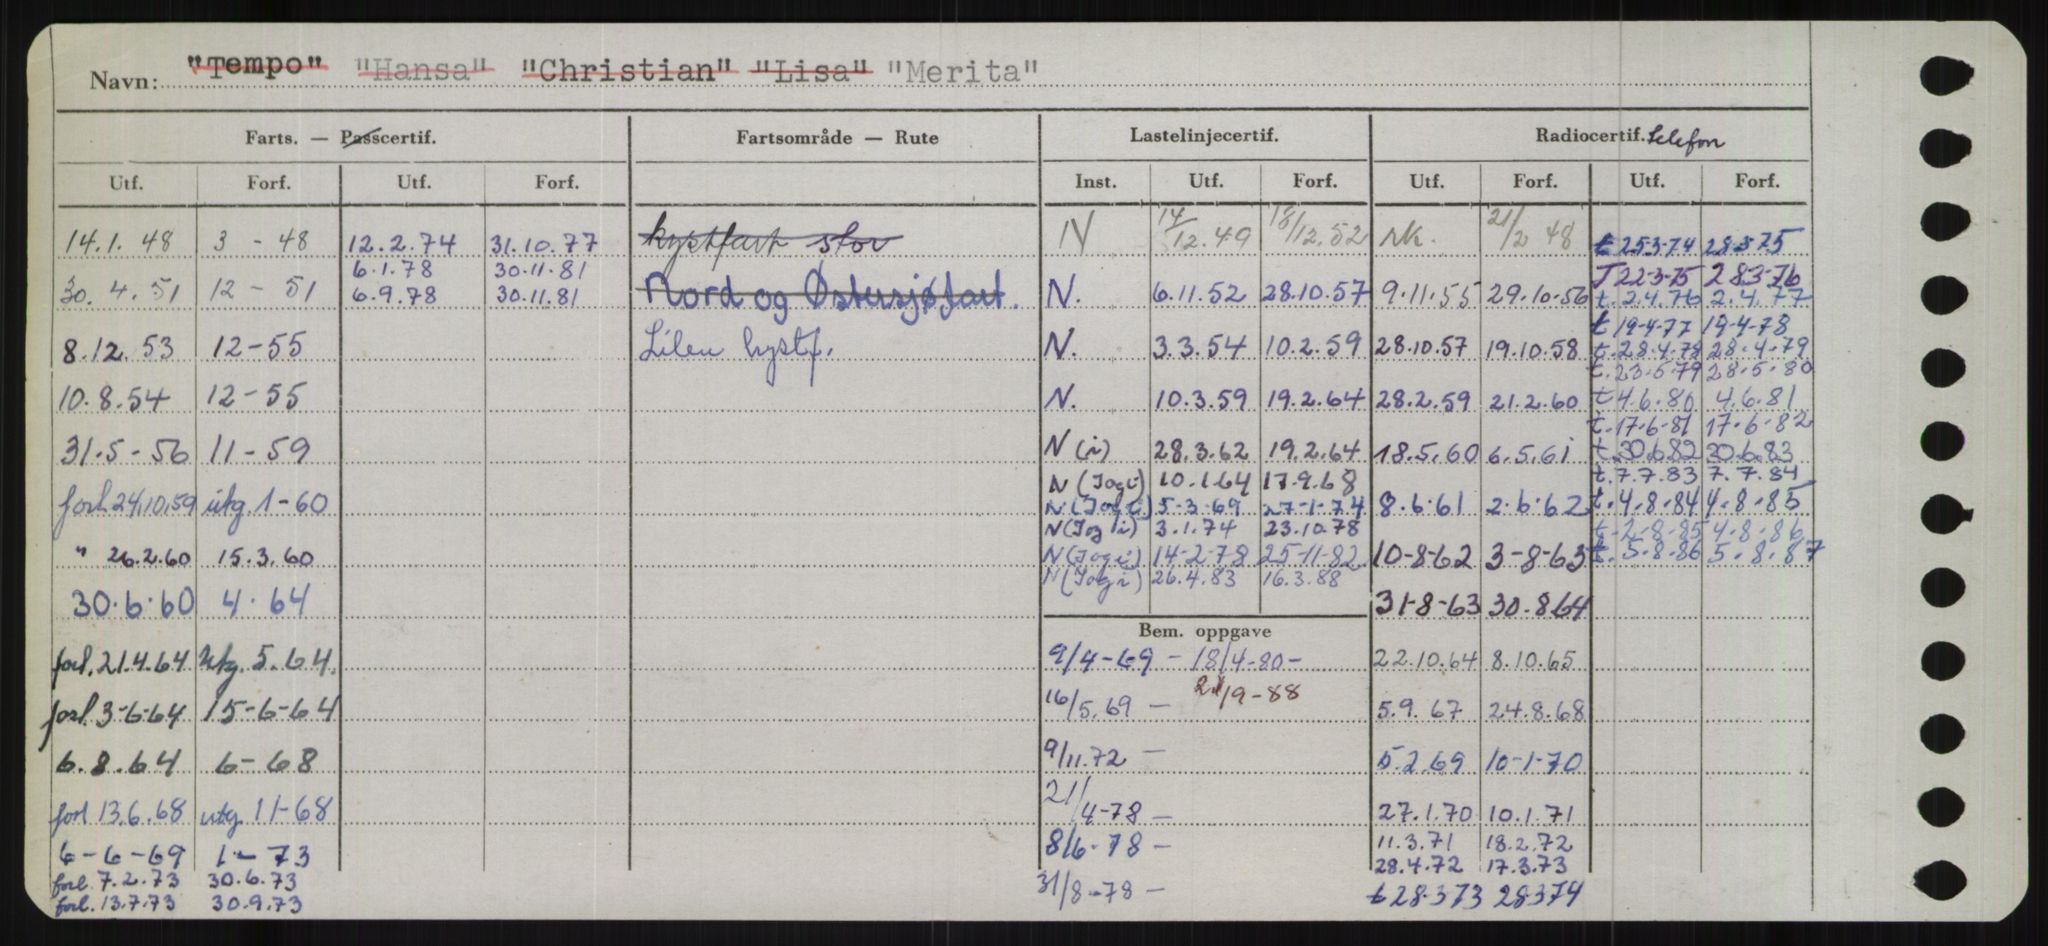 Navn: "Tempo" "Hansa" "Christian" "Lisa" "Merita"
Farts. — Passcertif. Fartsområde — Rute Lastelinjecertif. Radiocertif. telefon
Utf. Forf. Utf. Forf. Inst. Utf. Forf. Utf. Forf. Utf. Forf.
14.1.48 3 - 48 12.2.74 31.10.77 kystfart stor N 14/12.49 18/12.52 NK. 21/2 48 t 25.3.74 28.3.75
6.1.78 30.11.81 T 22-3-75 28.3.76
30.4.51 12 - 51 6.9.78 30.11.81 Nord og Østersjøfart. N. 6.11.52 28.10.57 9.11.55 29.10.56 t. 2.4.76 2.4.77
t 19-4-77 19-4-78
8.12.53 12-55 Liten kystf. N. 3.3.54 10.2.59 28.10.57 19.10.58 t. 28.4.78 28.4.79
t. 23.5.79 28.5.80
10.8.54 12-55 N. 10.3.59 19.2.64 28.2.59 21.2.60 t 4.6.80 4.6.81
t. 17-6-81 17-6-82
31.5-56 11-59 N (i) 28.3.62 19.2.64 18.5.60 6.5.61 t. 30.6.82 30.6.83
N (Jogi) 10.1.64 17.9.68 t. 7.7.83 7.7.84
forl. 24.10.59 utg. 1-60 N (Jogi) 5-3-69 27-1-74 8.6.61 2.6.62 t. 4.8.84 4.8.85
N (Jogi) 3.1.74 23.10.78 t. 2-8-85 4.8.86
" 26.2.60 15.3.60 N (Jogi) 14-2-78 25-11-82 10-8-62 3-8-63 t. 5.8.86 5.8.87
N (Jogi) 26.4.83 16.3.88
30.6.60 4.64 31-8-63 30.8.64
Bem. oppgave
forl. 21.4.64 utg. 5.64. 9/4-69 - 18/4-80 - 22.10.64 8.10.65
forl. 3-6-64 15-6-64 16/5.69 - /9-88 5.9.67 24.8.68
6.8.64 6-68 9/11.72 - 5.2.69 10-1-70
forl 13.6.68 utg 11-68 21/4-78 - 27.1.70 10.1.71
6-6-69 1-73 8/6-78 - 11.3.71 18.2.72
forl. 7.2.73 30.6.73 28.4.72 17.3.73
forl. 13.7.73 30.9.73 31/8-78 - t 28.3.73 28.3.74